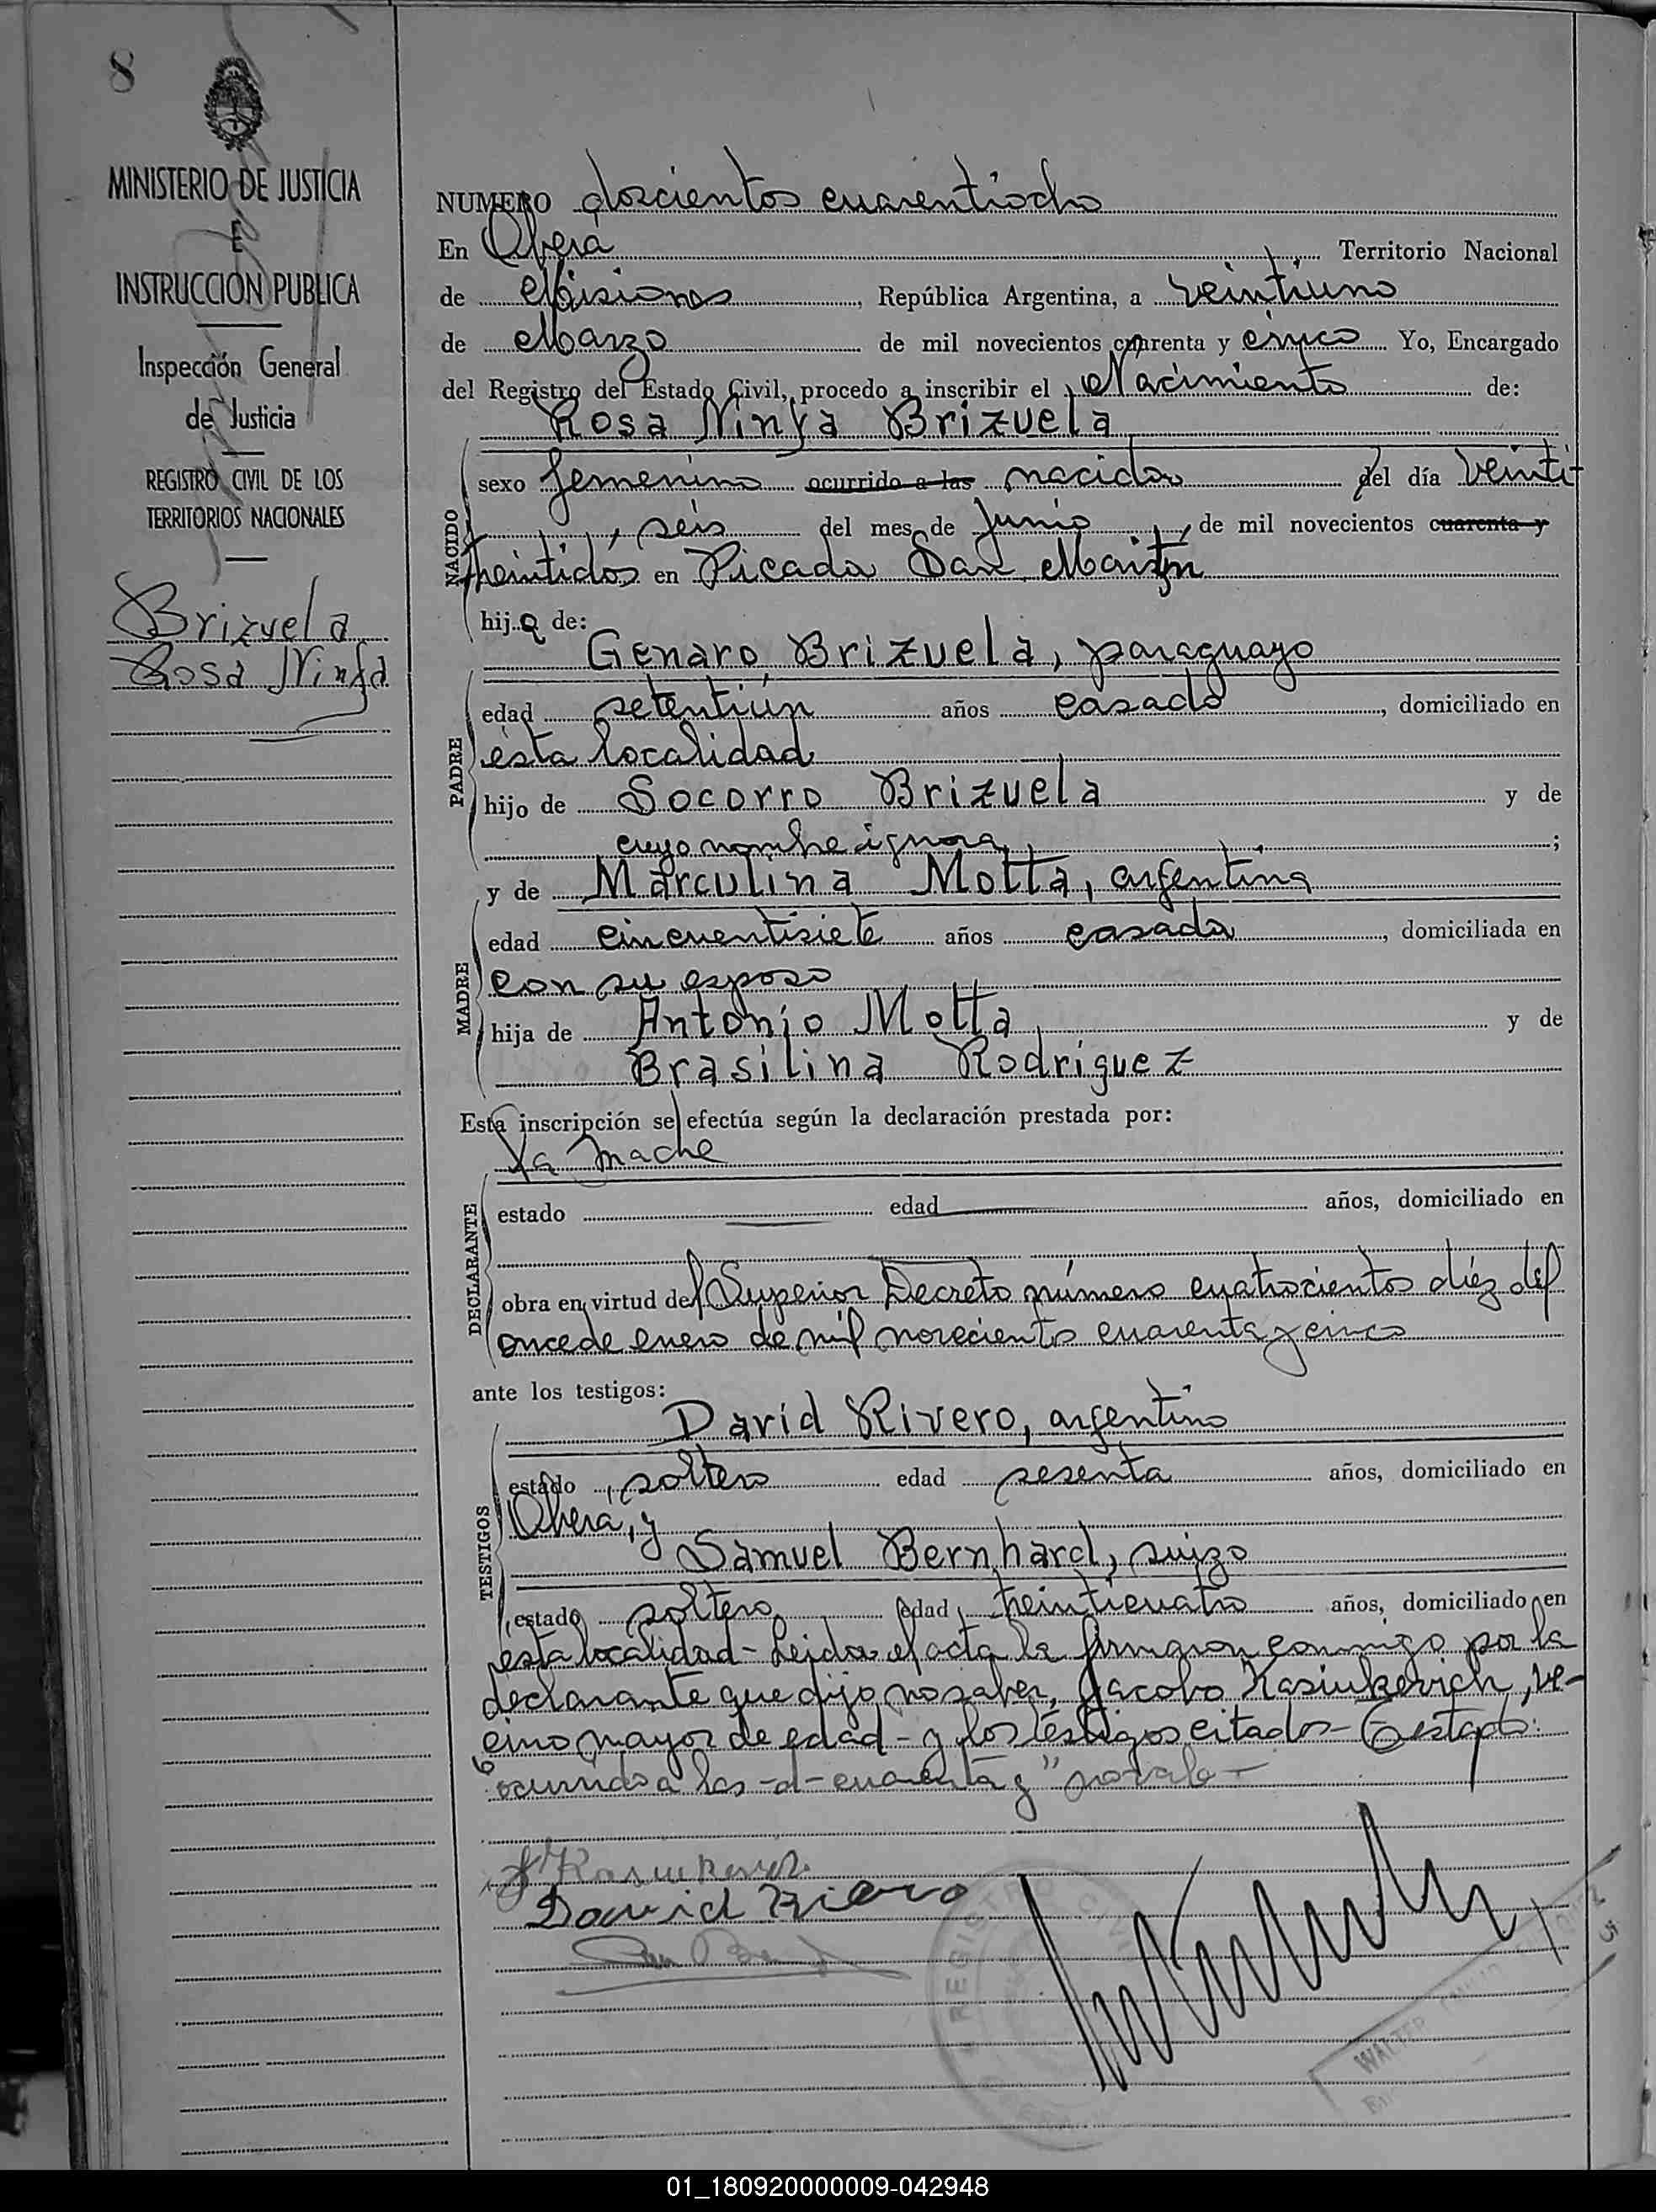 8
MINISTERIO DE JUSTICIA
E
INSTRUCCIÓN PUBLICA
Inspección General
de Justicia
REGISTRO CIVIL DE LOS
TERRITORIOS NACIONALES
Brizuela
Rosa Ninfa
NUMERO doscientos cuarentiocho
En Oberá Territorio Nacional
de Misiones, República Argentina, a veintiuno
de Marzo de mil novecientos cuarenta y cinco Yo, Encargado
del Registro del Estado Civil, procedo a inscribir el Nacimiento de:
Rosa Ninfa Brizuela
NACIDO
sexo femenino ocurrido a las nacida del día veinti-
seis del mes de Junio, de mil novecientos cuarenta y
treintidós en Picada San Martín
hija de:
Genaro Brizuela, paraguayo
PADRE
edad setentiún años casado, domiciliado en
ésta localidad
hijo de Socorro Brizuela y de
cuyo nombre ignora;
y de Marculina Motta, argentina
MADRE
edad cincuentisiete años casada, domiciliada en
con su esposo
hija de Antonio Motta y de
Brasilina Rodriguez
Esta inscripción se efectúa según la declaración prestada por:
la madre
DECLARANTE
estado edad años, domiciliado en
obra en virtud del Superior Decreto número cuatrocientos diéz del
once de enero de mil novecientos cuarenta y cinco
ante los testigos:
David Rivero, argentino
TESTIGOS
estado soltero edad sesenta años, domiciliado en
Oberá, y
Samuel Bernhard, suizo
estado soltero edad treinticuatro años, domiciliado en
esta localidad - Leida el acta la firmaron conmigo por la
declarante que dijo no saber, Jacobo Kasiukevich, ve-
cino mayor de edad - y los testigos citados - Testado:
"ocurrido a las - d - cuarenta y" no vale -
J Kasiukevich
David Rivero
REGISTRO CIVIL
WALTER
01_180920000009-042948